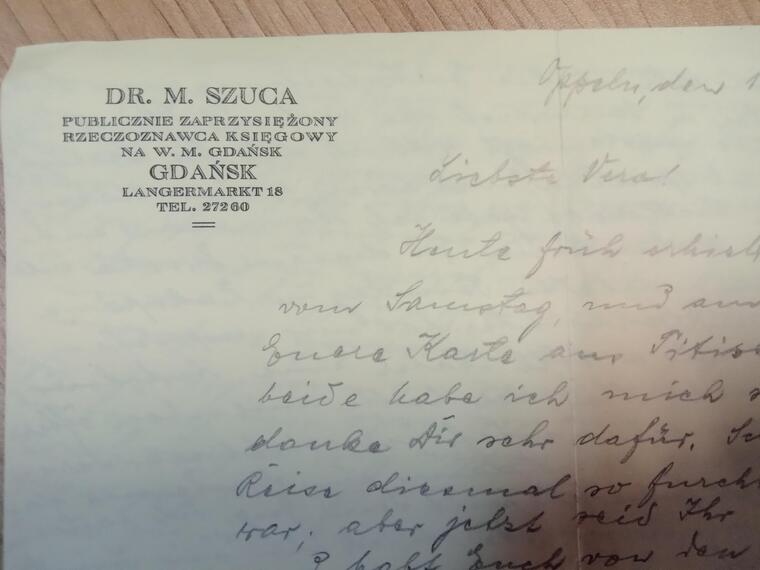 DR. M. SZUCA
PUBLICZNIE ZAPRZYSIĘŻONY
RZECZOZNAWCA KSIĘGOWY
NA W. M. GDAŃSK
GDAŃSK
LANGERMARKT 18
TEL. 27260
Oppeln, den 1
Liebste Vera!
Heute früh erhielt
vom Samstag, und am
Euere Karte aus Titise
beide habe ich mich
danke Dir sehr dafür.
Reise diesmal so furcht
war; aber jetzt seid Ihr
habt Euch von den